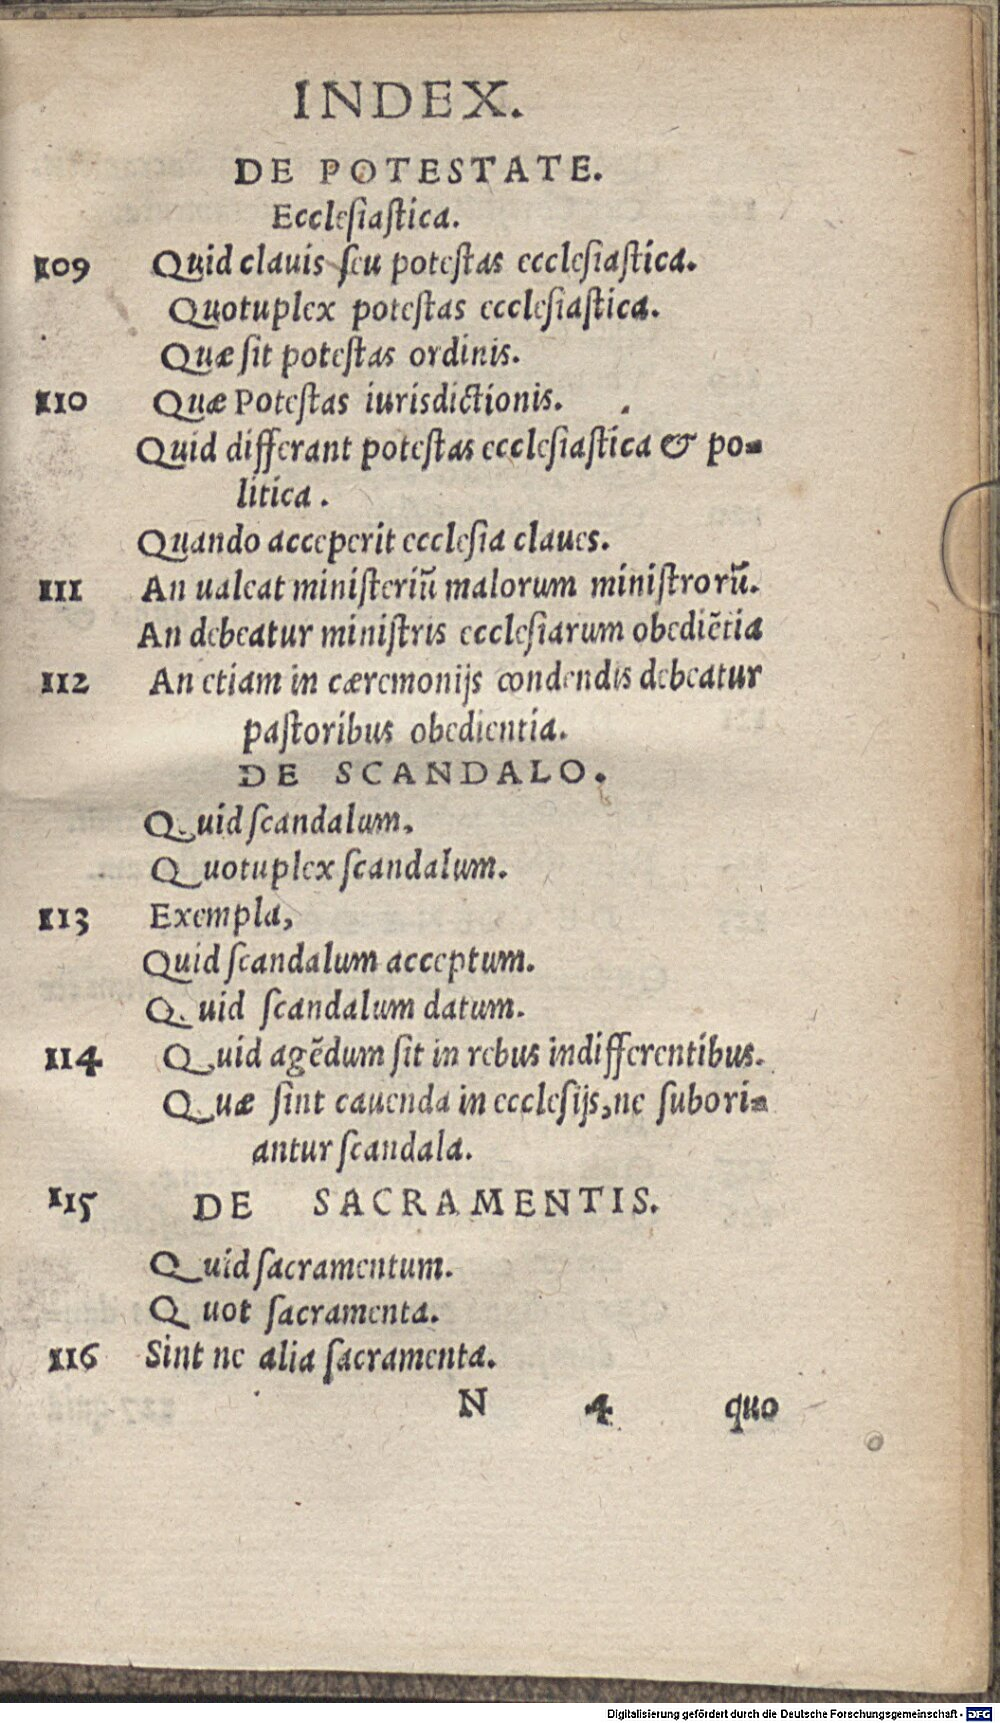 INDEX.
DE POTESTATE.
Eccleſiaſtica.
109 Quid clauis ſeu poteſtas eccleſiaſtica.
Quotuplex poteſtas eccleſiaſtica.
Quæ ſit poteſtas ordinis.
110 Quæ Poteſtas iurisdictionis.
Quid differant poteſtas eccleſiaſtica & po-
litica.
Quando acceperit eccleſia claues.
111 An ualeat miniſteriũ malorum miniſtrorũ.
An debeatur miniſtris eccleſiarum obediẽtia
112 An etiam in cæremonijs condendis debeatur
paſtoribus obedientia.
DE SCANDALO.
Quid ſcandalum.
Quotuplex ſcandalum.
113 Exempla,
Quid ſcandalum acceptum.
Quid ſcandalum datum.
114 Quid agẽdum ſit in rebus indifferentibus.
Quæ ſint cauenda in eccleſijs, ne ſubori-
antur ſcandala.
115 DE SACRAMENTIS.
Quid ſacramentum.
Quot ſacramenta.
116 Sint ne alia ſacramenta.
N 4 quo
Digitalisierung gefördert durch die Deutsche Forschungsgemeinschaft - DFG